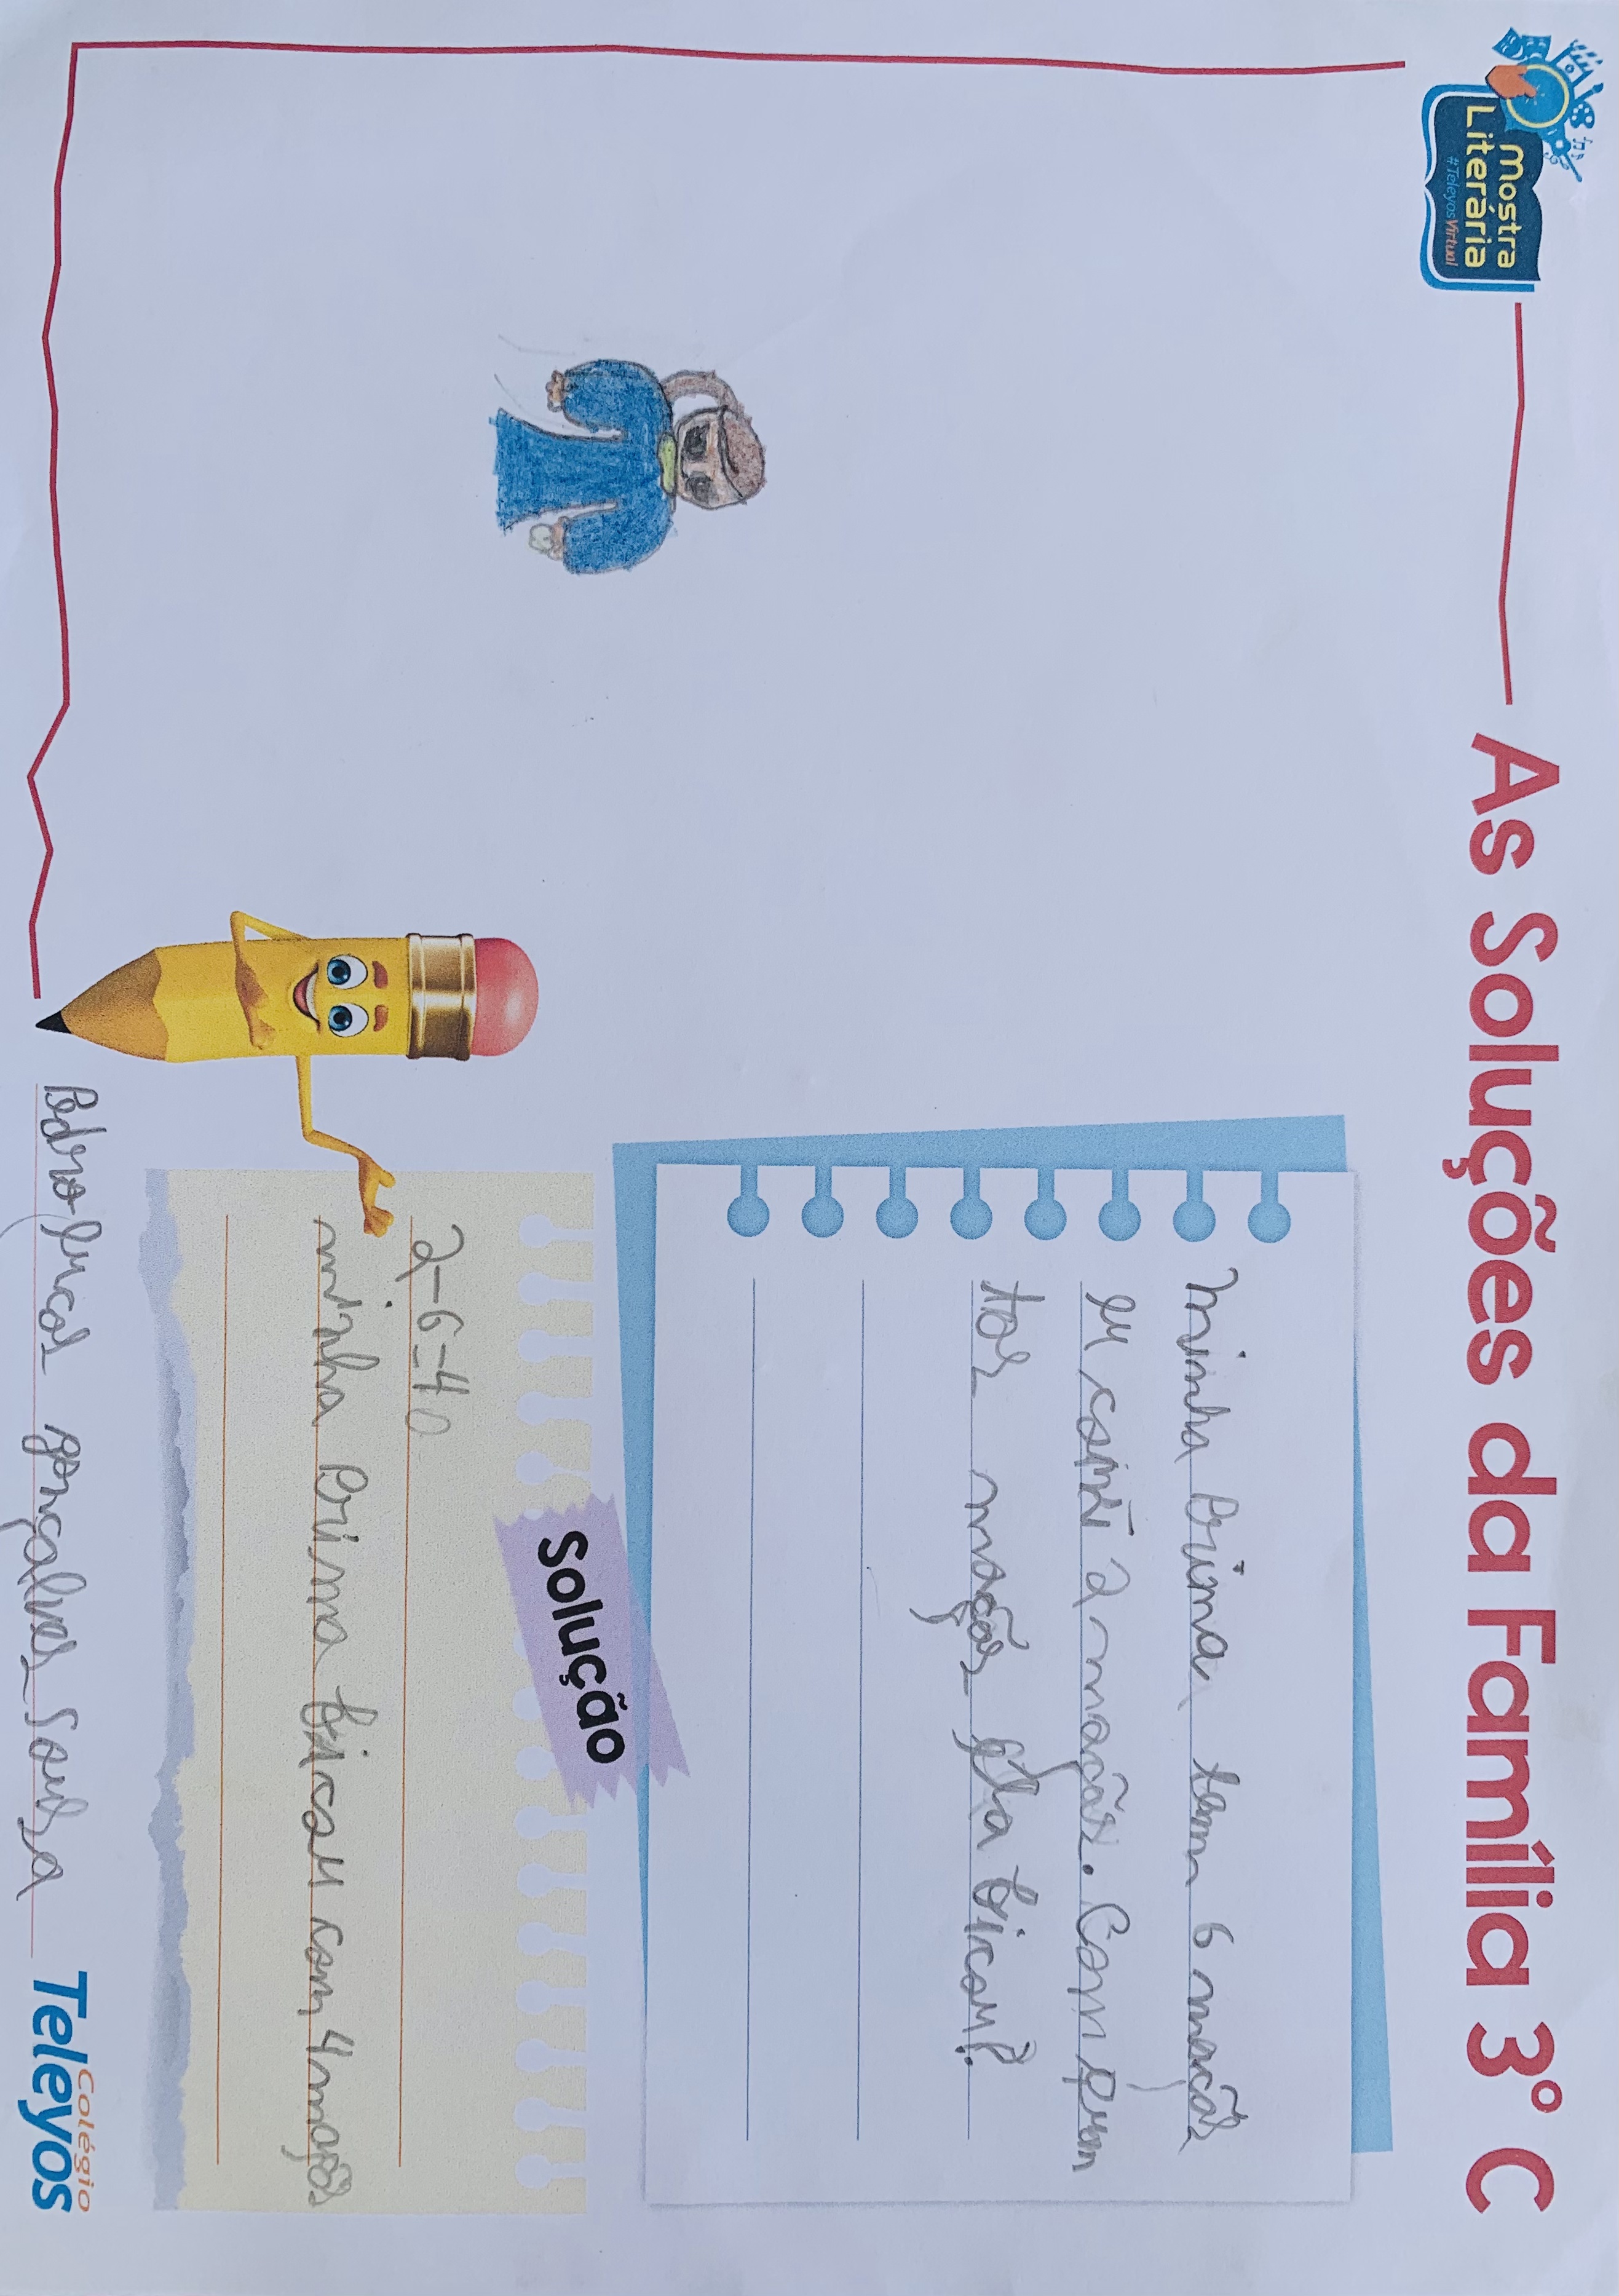 Mostra
Literária
#TeleyosVirtual
As Soluções da Família 3º C
minha Prima tem 6 maçãs
eu comi 2 maçãs. Com quan
tas maçãs Ela ficou?
Solução
2-6=4
minha Prima ficou com 4 maçãs
Pedro Lucas gonçalves Souza
Colégio
Teleyos